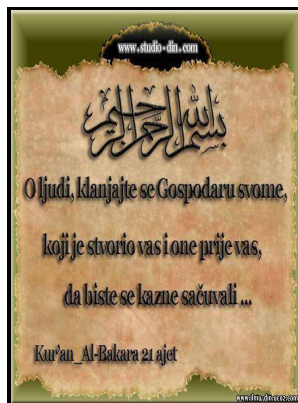 www.studio-din.com
بسم الله الرحمن الرحيم
O ljudi, klanjajte se Gospodaru svome,
koji je stvorio vas i one prije vas,
da biste se kazne sačuvali ...
Kur'an_Al-Bakara 21 ajet
www.ilmu.din.ucoz.com